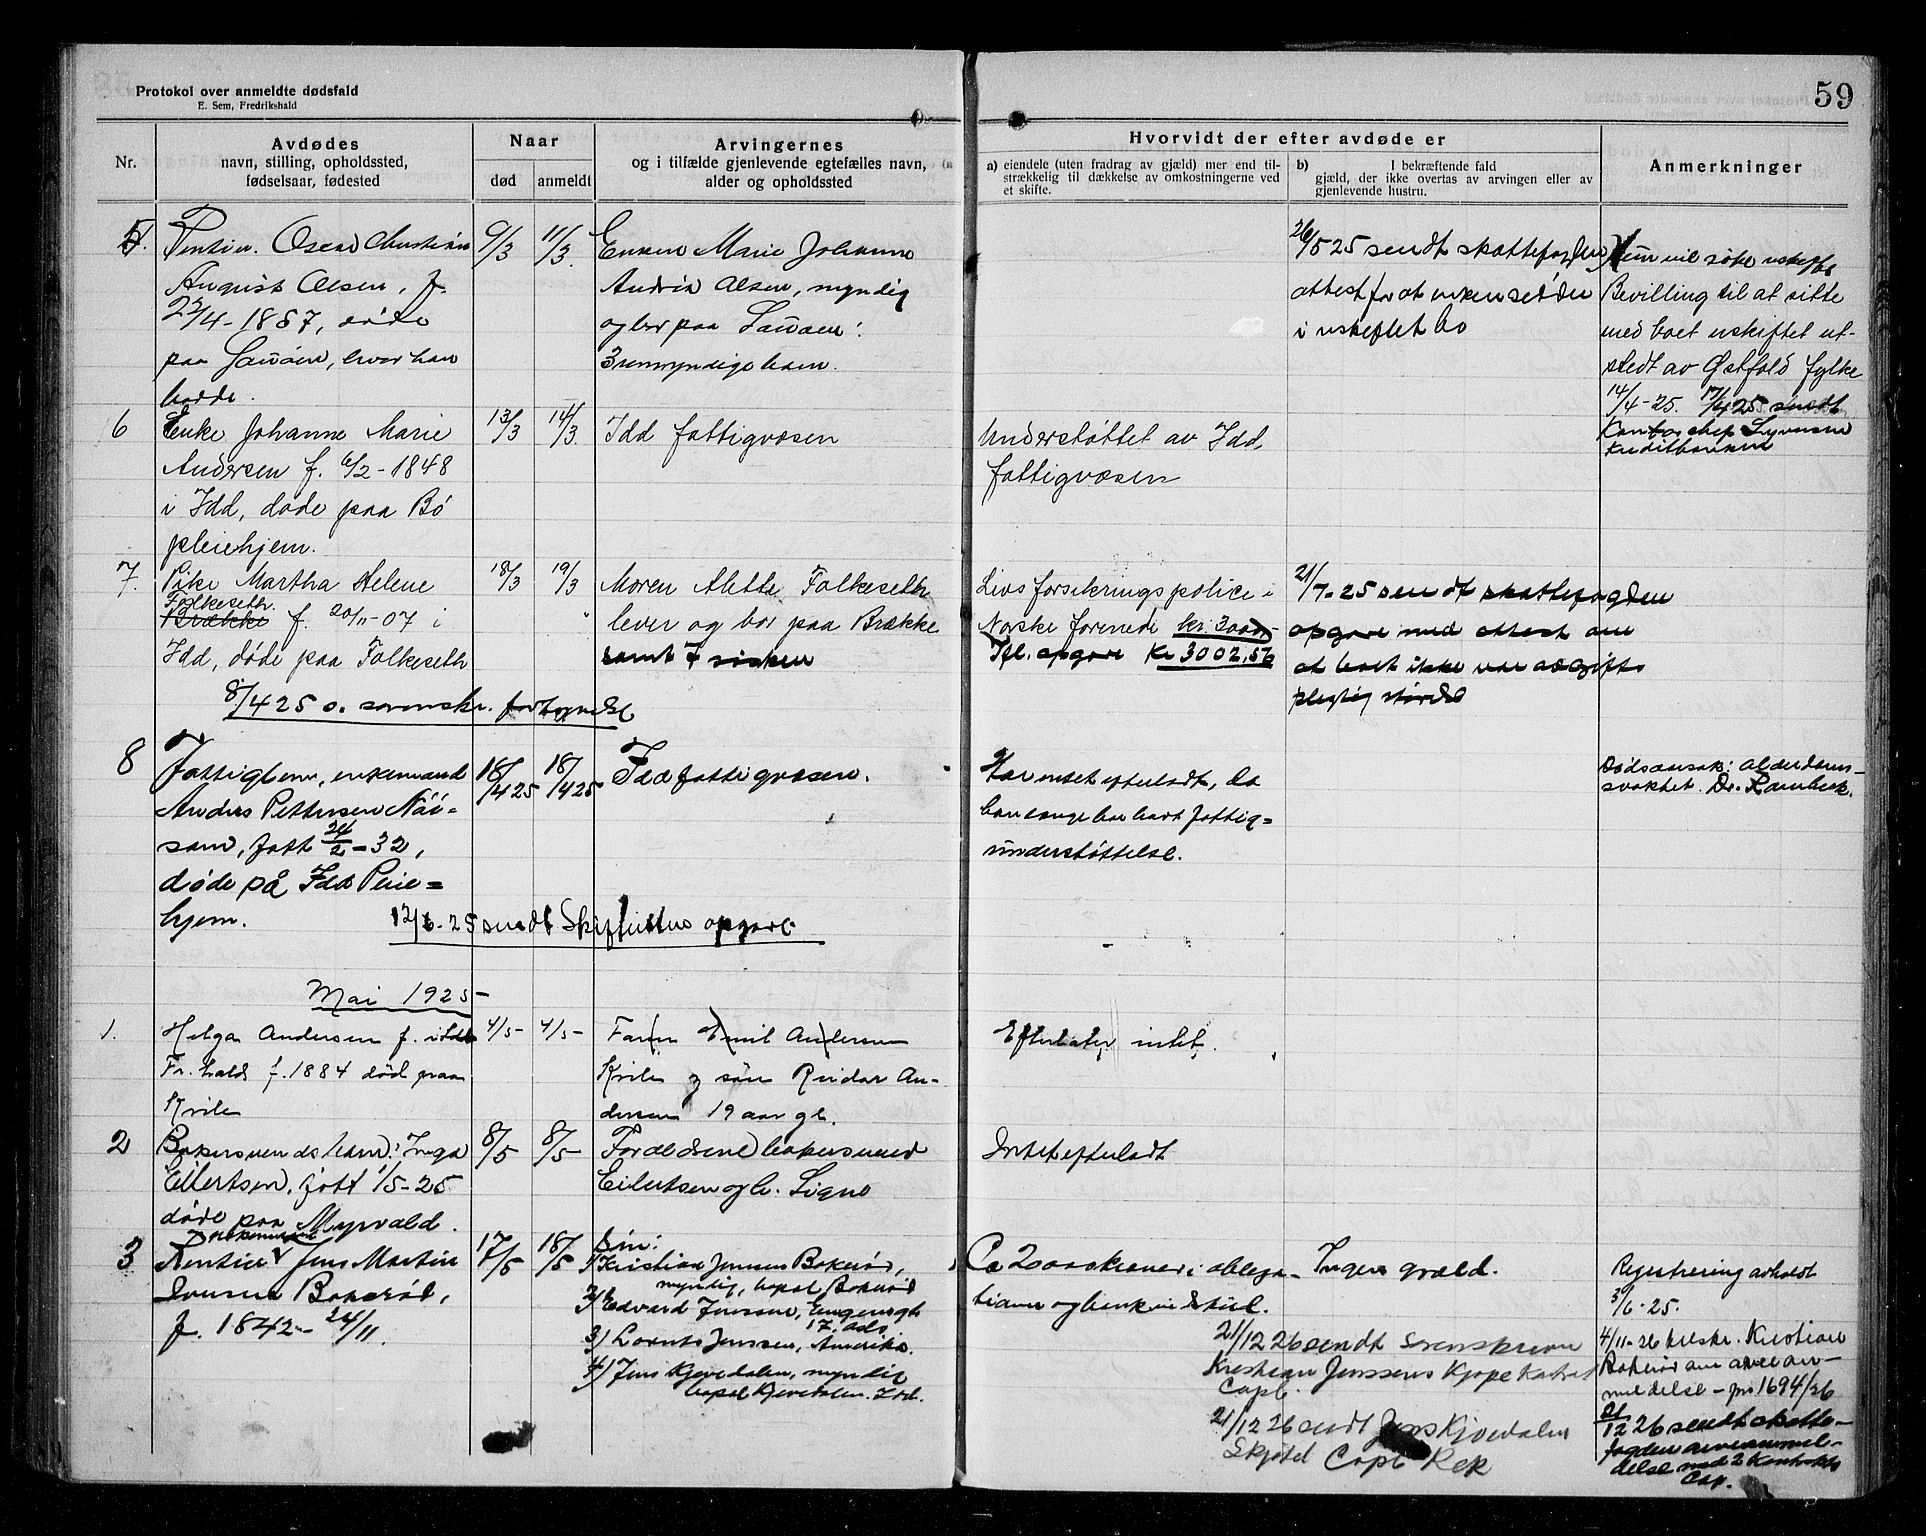 59
Protokol over anmeldte dødsfald
E. Sem, Fredrikshald
Nr.
Avdødes
navn, stilling, opholdssted,
fødselsaar, fødested
Naar
død
anmeldt
Arvingernes
og i tilfælde gjenlevende egtefælles navn,
alder og opholdssted
Hvorvidt der efter avdøde er
a) eiendele (uten fradrag av gjæld) mer end til-
strækkelig til dækkelse av omkostningerne ved
et skifte.
b) I bekræftende fald
gjæld, der ikke overtas av arvingen eller av
gjenlevende hustru.
Anmerkninger
5.
Rentier. Oscar Christian
August Olsen, f.
22/4-1857, døde
paa Sauøen, hvor han
bodde.
9/3
11/3.
Enken Marie Johanne
Andrea Olsen, myndig
og bor paa Sauøen.
3 umyndige barn.
26/5 25 sendt skattefogden
attest for at enken sidder
i uskiftet bo
Hun vil søke uskiftet
Bevilling til at sitte
med boet uskiftet ut-
stedt av Østfold fylke
14/4-25. 17/4 25 sendt
Kontorchef Syversen
Kreditbanken
6
Enke Johanne Marie
Andersen f. 6/2-1848
i Idd, døde paa Bø
pleiehjem.
13/3
14/3.
Idd fattigvæsen
Understøttet av Idd,
fattigvæsen
7.
Pike Martha Helene
Folkeseth.
Brække f. 20/11-07 i
Idd, døde paa Folkeseth
18/3
19/3
Moren Alette Folkeseth
lever og bor paa Brække
samt 7 søsken
Livsforsikringspolice i
Norske forenede kr. 3000-
Ifl. opgave Kr 3002,56
21/7-25 sendt skattefogden
opgave med attest om
at boet ikke var avgifts
pligtig størrelse
8/4 25 o. sorenskr. fortegnelse
8
Fattiglem, enkemand
Anders Pettersen
født 24/2-32,
døde på Idd Pleie=
hjem.
18/4 25
18/4 25
Idd fattigvæsen.
Har intet efterladt, da
han længe har hatt fattig=
understøttelse.
Dødsaarsak: alderdoms-
svakhet. Dr. Rambeck.
12/6-25 sendt Skifterettens opgave.
Mai 1925-
1.
Helga Andersen f. i Idd
Fr.hald f. 1884 død paa
Kvile
4/5-
4/5-
Faren Emil Andersen
Kvile og søn Reidar An-
dersen 19 aar gl.
Efterlater intet.
2
Bakersvendsbarn: Inga
Eilertsen, født 1/5-25
døde paa Myrvold.
8/5
8/5-
Forældrene bakersvend
Eilertsen og h. Signe
Intet efterladt
3
Rentier Jens Martin
Jensen Bakerød,
f. 1842- 26/11.
17/5
18/5
Søn:
1) Kristian Jensen Bakerød,
myndig, bopæl Bakerød
2) Edvard Jenssen,
17. Mds.
3) Lornts Jenssen, Amerika.
4) Jens Kjevedalen, myndig
bopæl Kjevedalen. Idd.
Ca 2000 kroner i obliga-
tioner og bankinnskud.
Ingen gjæld.
21/12 26 sendt Sorenskriveren
Kristian Jenssens Kjøpekontrakt
Capt.
21/12 26 sendt Jens Kjevedalen
Skjøtet Capt Rek
Registrering avholdt
3/6-25.
4/11-26 tilskr. Kristian
Bakerød om arvean-
meldelse - jnr 1694/26
21/12 26 sendt skatte-
fogden arveanmel-
delse med 2 kontrakter
Cap.